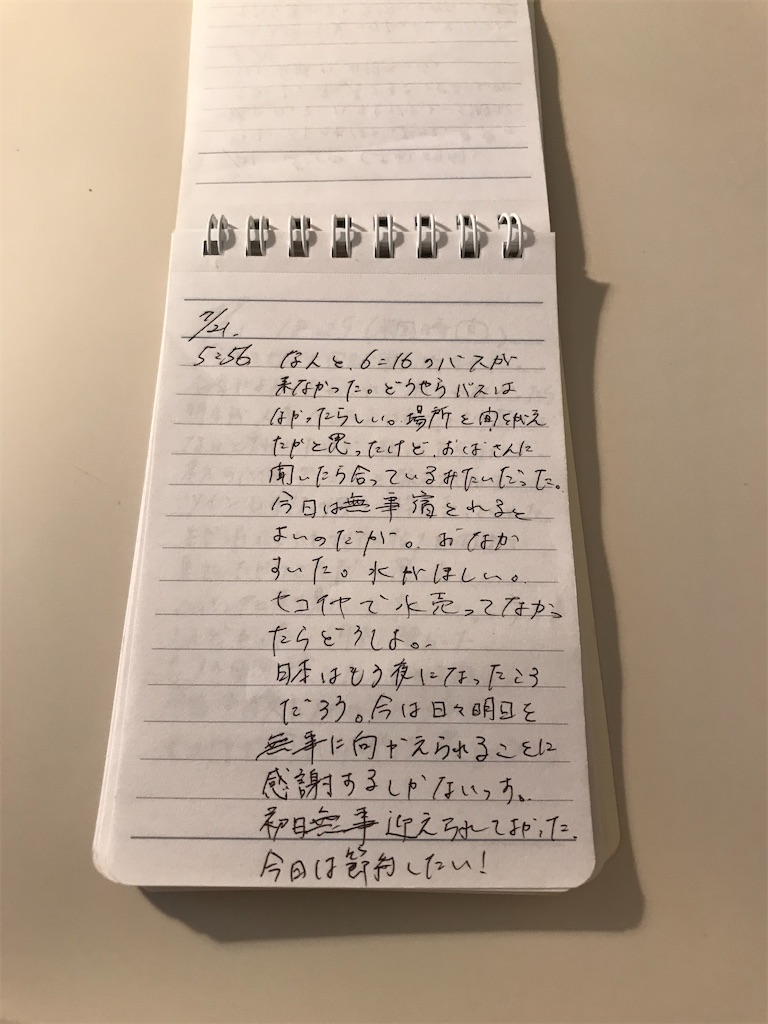 7/21.
5:56 なんと、6:16のバスが
来なかった。どうやらバスは
なかったらしい。場所を間違え
たかと思ったけど、おばさんに
聞いたら合っているみたいだった。
今日は無事宿とれると
よいのだが。おなか
すいた。水がほしい。
セコイヤで水売ってなかっ
たらどうしよ。
日本はもう夜になったころ
だろう。今は日々明日を
無事に向かえられることに
感謝するしかないっす。
初日無事迎えられてよかった。
今日は節約したい!